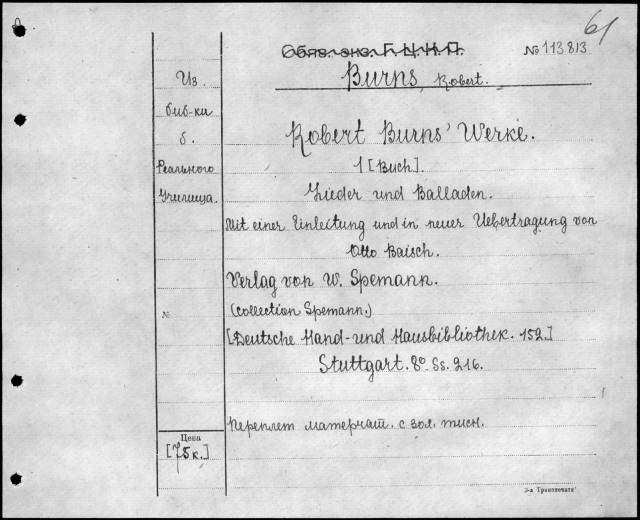 61
Обяз. экз. Г.Ц.К.П.
№ 113813
Burns, Robert.
Из
биб-ки
б.
Реального
Училища.
Robert Burns' Werke.
1 [Buch].
Lieder und Balladen.
Mit einer Einleitung und in neuer Uebertragung von
Otto Baisch.
Verlag von W. Spemann.
(Collection Spemann.)
[Deutsche Hand- und Hausbibliothek. 152.]
Stuttgart. 8° Ss. 216.
№
Переплет матерчат. с зол. тисн.
Цена
[75 к.]
3-я Транспечати